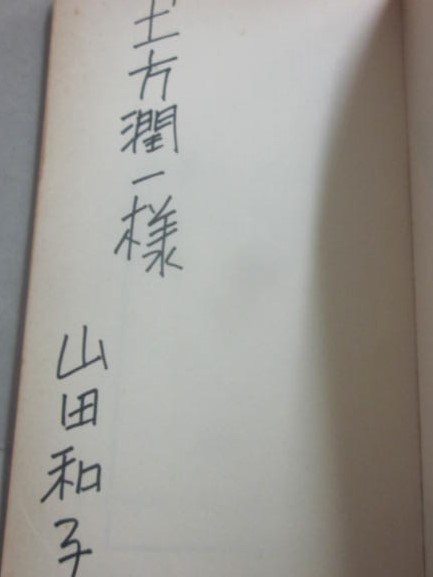 土方潤一様
山田和子